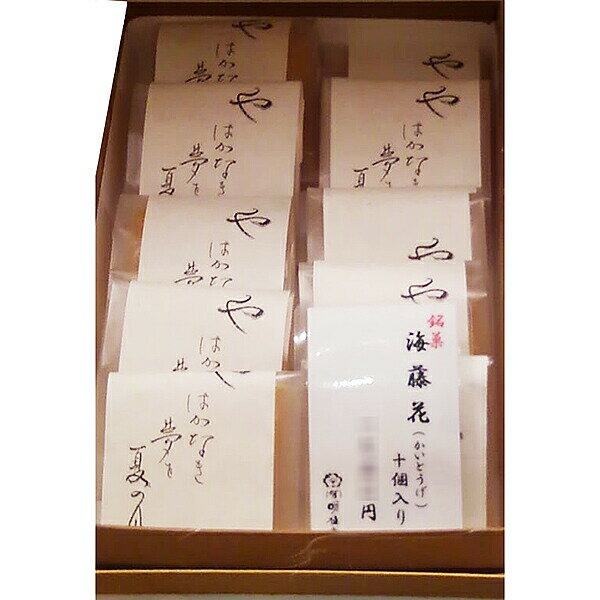 や
はかな
夢
や
や
はかなき
夢を
夏
や
はかなき
夢を
夏
や
はかな
夢
や
や
はかな
夢
や
はかなき
夢を
夏の月
銘菓
海藤花
(かいとうげ)
十個入り
円
有明